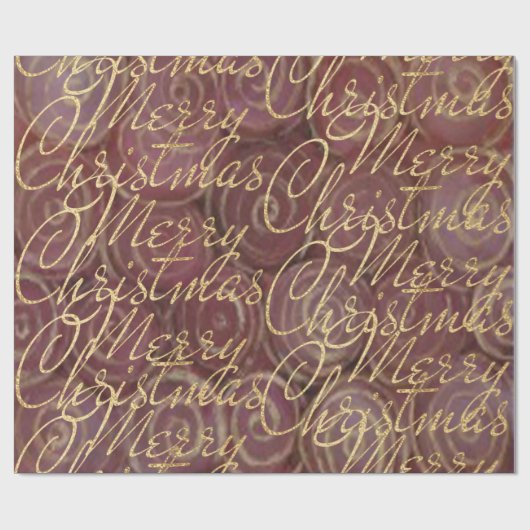 Christmas
Merry
Christmas
Merry
Christmas
Merry
Christmas
Merry
Merry
Christmas
Merry
Christmas
Merry
Christmas
Merry
Christmas
Merry